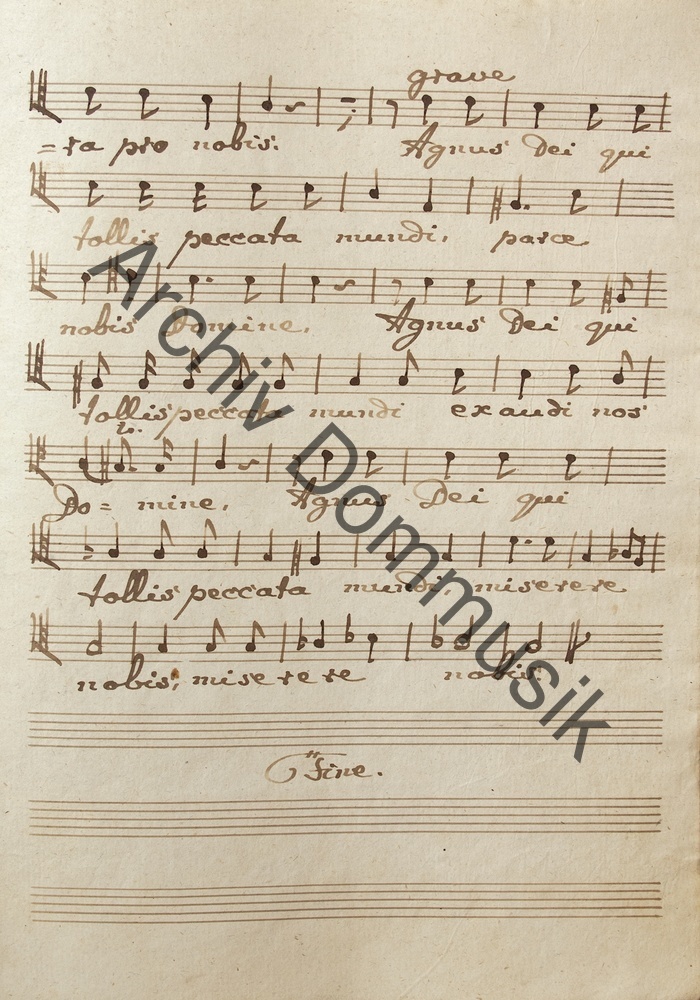 grave
=ra pro nobis: Agnus Dei qui
tollis peccata mundi, parce
nobis Domine, Agnus Dei qui
tollis peccata mundi exaudi nos
Do= mine, Agnus Dei qui
tollis peccata mundi, miserere
nobis; miserere nobis.
Fine.
Archiv Dommusik